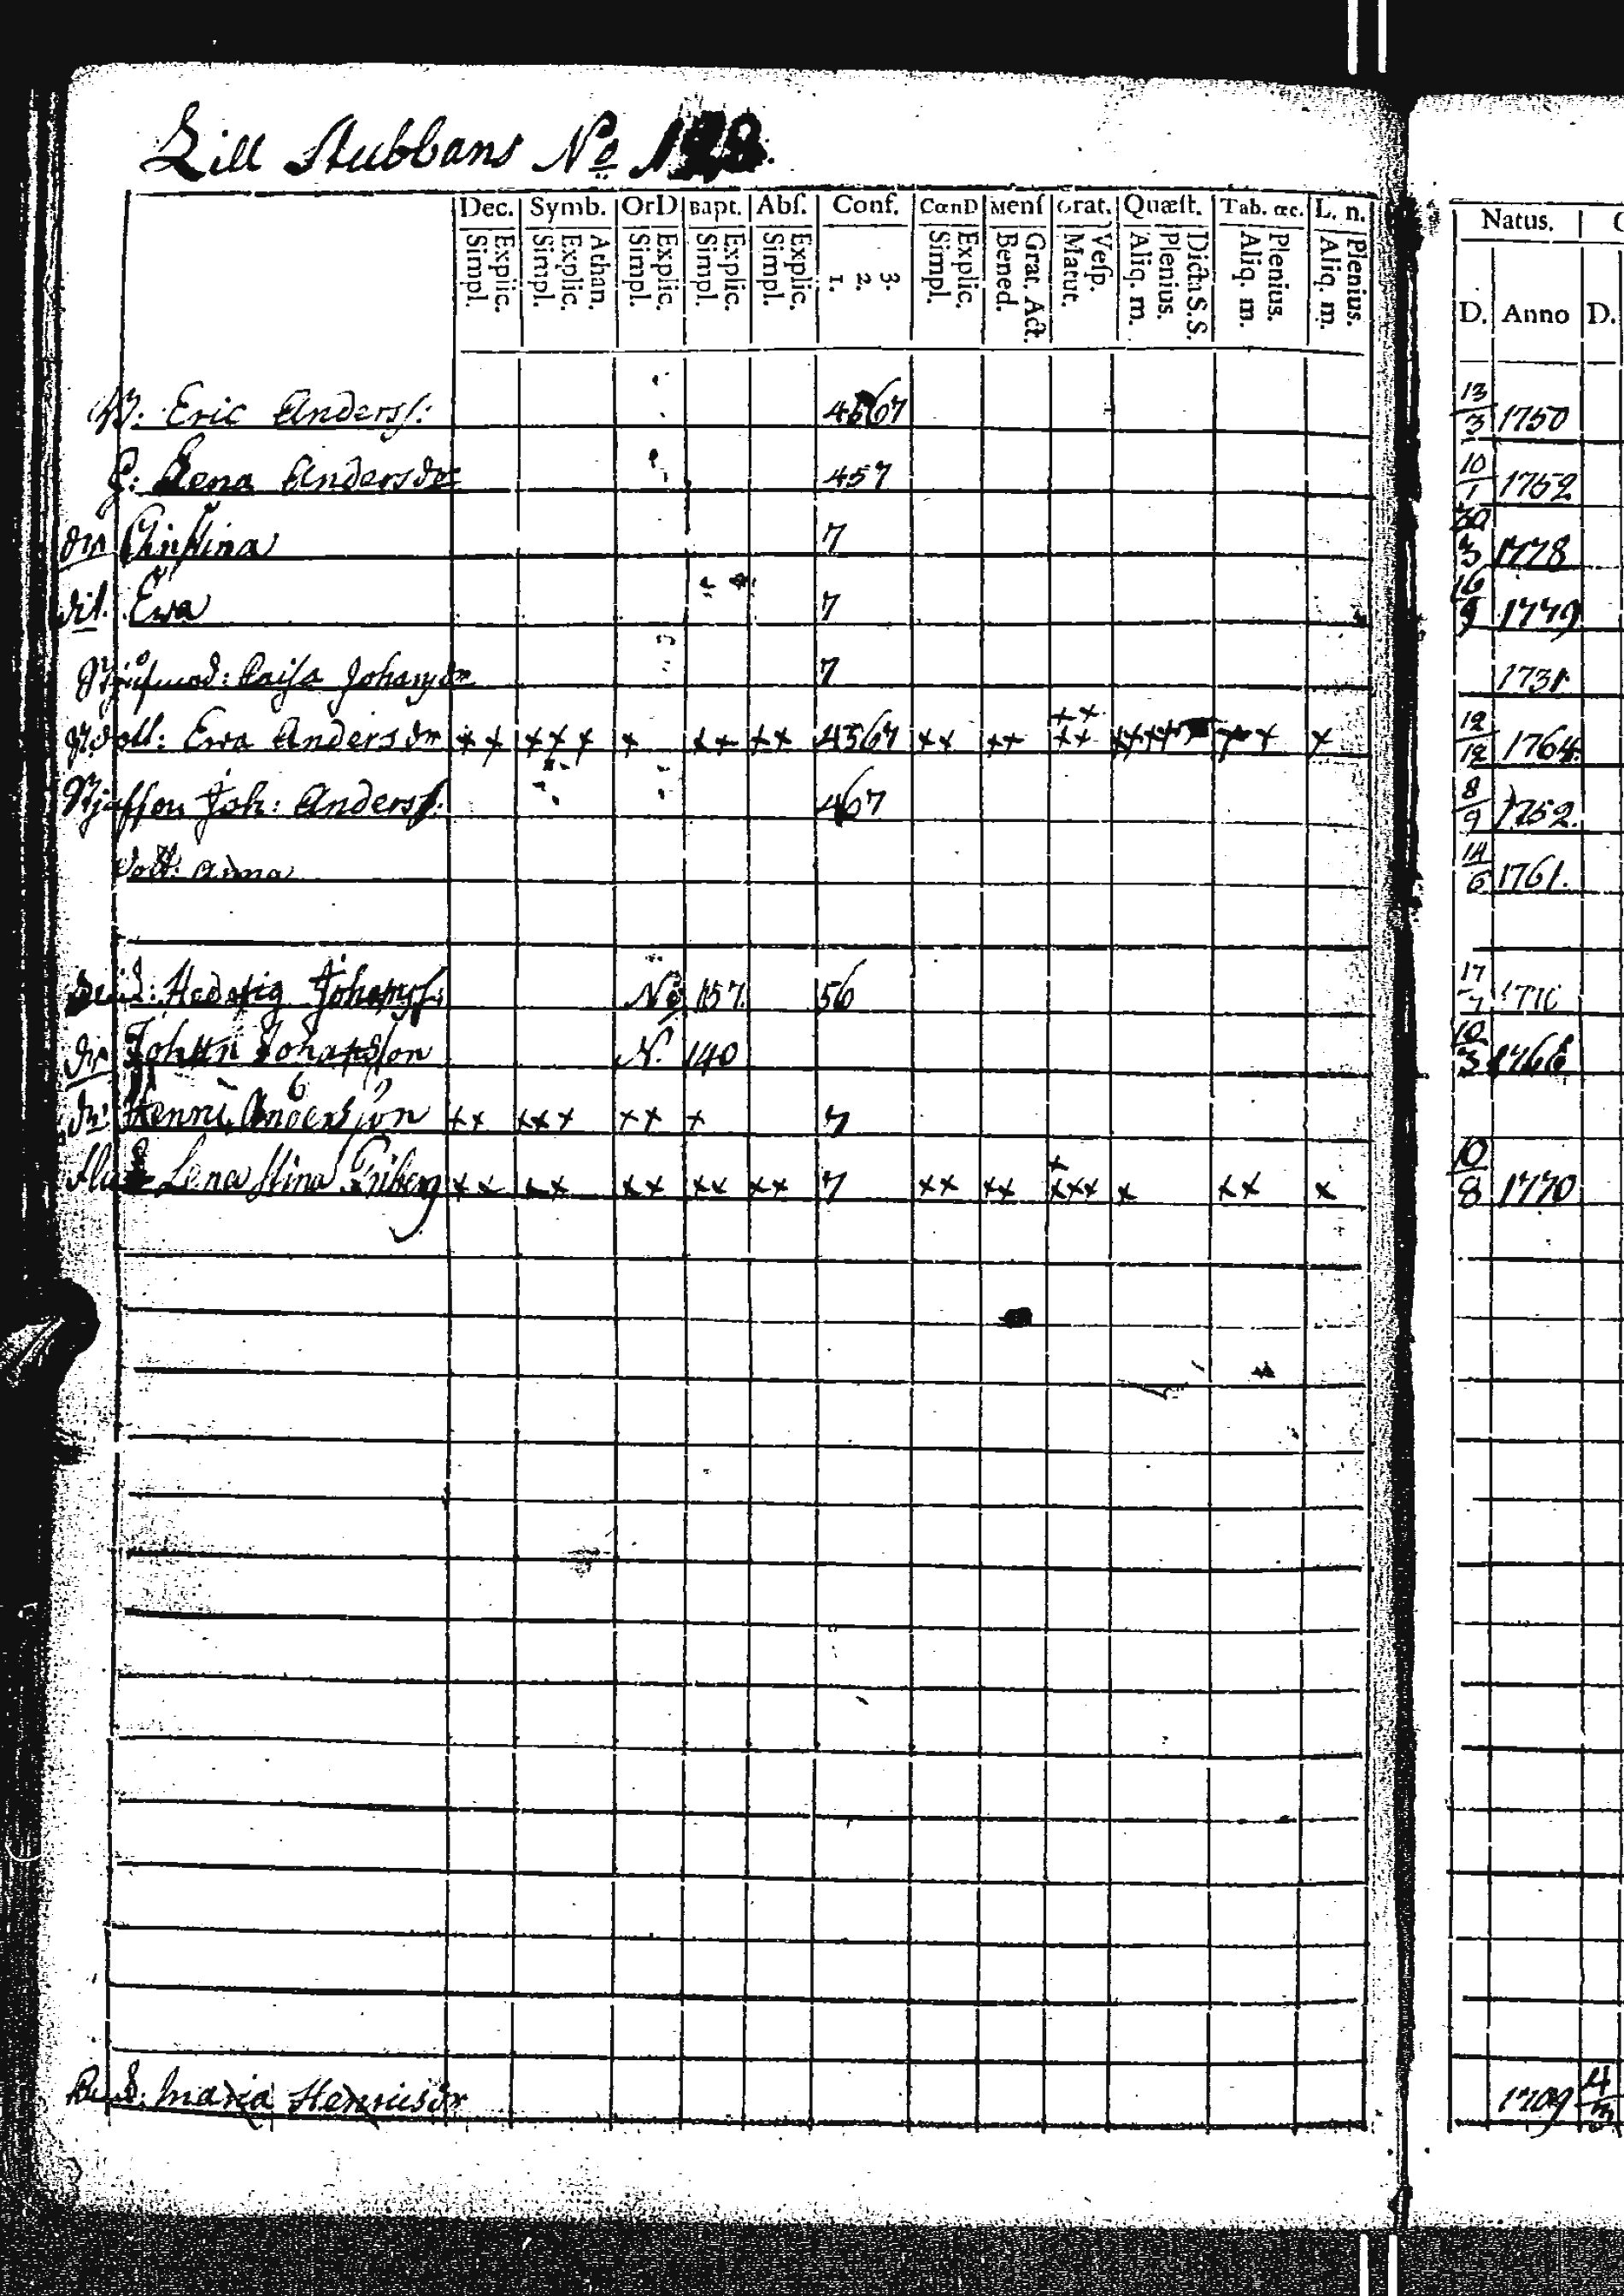 Lill Stubbans No
Dec. Symb. OrD Bapt. Abſ. Conf. CœnD Menſ Grat. Quæſt. Tab. œc. L. n. Natus.
Explic. Simpl. Athan. Explic. Simpl. Explic. Simpl. Explic. Simpl. Explic. Simpl. 3. 2. 1. Explic. Simpl. Grat. Act. Bened. Veſp. Matut. Dicta S.S. Plenius. Aliq. m. Plenius. Aliq. m. Plenius. Aliq. m. D. Anno D.
Eric Anderss: 4567 13/3 1750
Lena Andersdr 457 10/1 1752
Christina 7 1778
Ewa 7 16/9 1779
Caisa 7 1731
Ewa Andersdr x x x x x x x x x x 4567 x x x x x x x x x x x x 12/12 1764
Joh: Anderss: 467 8/9 1752
dott: Anna 14/6 1761.
Hedvig No 157 56 17/7
Johan Johansson N. 140 1766
Henric Andersson x x x x x x x x 7
Lena Stina Friberg x x x x x x x x x x 7 x x x x x x x x x x x x 10/8 1770
Maria Henricsdr 1709